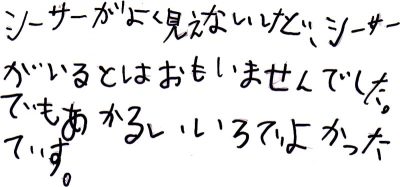 シーサーがよく見えないけど、シーサー
がいるとはおもいませんでした。
でもあかるいいろでよかった
です。